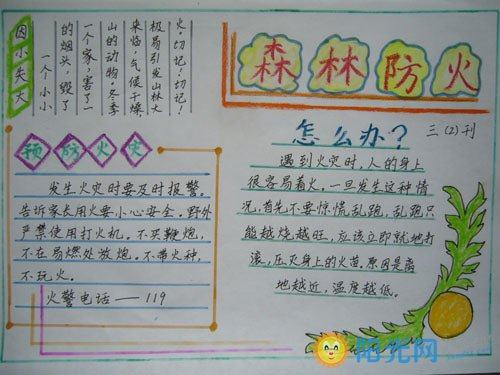 森林防火
三(2)刊
因小失大
一个小小
的烟头,毁了
一个家,害了一
山的动物。冬季
来临,气候干燥
极易引发山林大
火。切记!切记!
预防火灾
发生火灾时要及时报警。
告诉家长用火要小心安全。野外
严禁使用打火机。不买鞭炮,
不在易燃处放炮。不带火种,
不玩火。
火警电话——119
怎么办?
遇到火灾时,人的身上
很容易着火,一旦发生这种情
况,首先不要惊慌乱跑,乱跑只
能越烧越旺,应该立即就地打
滚,压灭身上的火苗。原因是离
地越近,温度越低。
阳光网